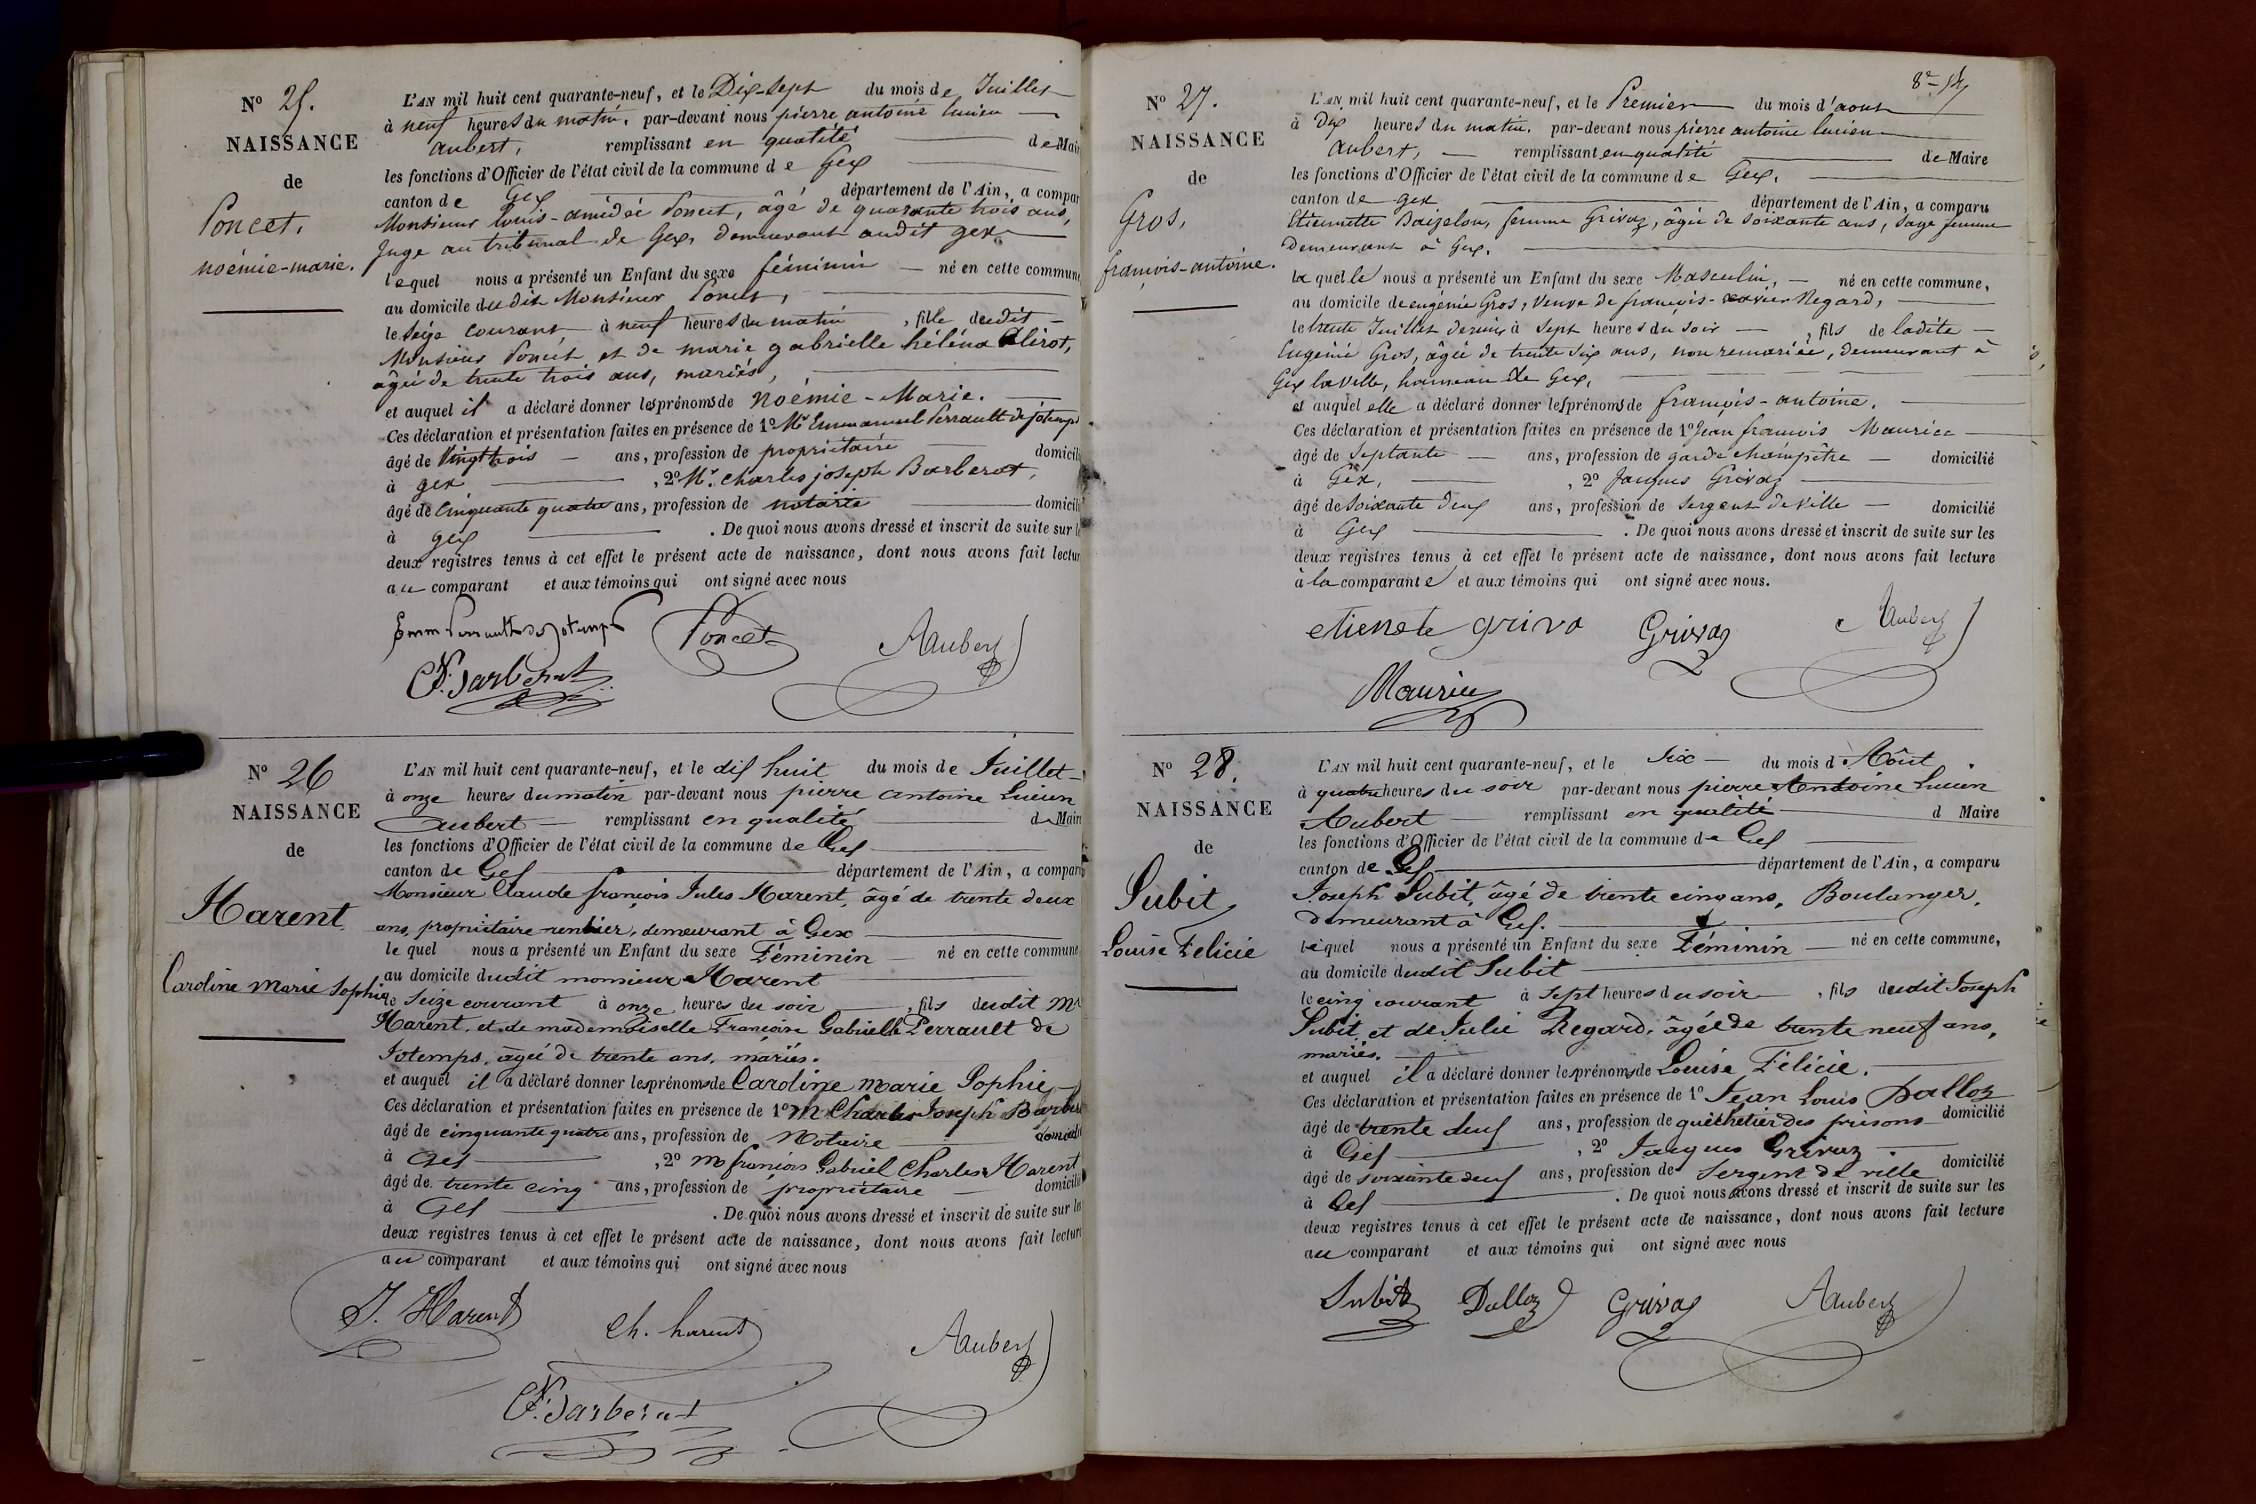 N° 25.
NAISSANCE
de
Poncet,
noémie-marie.
L'AN mil huit cent quarante-neuf, et le Dix-sept du mois de Juillet
à neuf heures du matin, par-devant nous pierre antoine lucien
aubert, remplissant en qualité de Mair
les fonctions d'Officier de l'état civil de la commune de Gex
canton de Gex département de l'Ain, a compar
Monsieur Louis-amédée Poncet, âgé de quarante trois ans,
Juge au tribunal de Gex, demeurant audit gex
lequel nous a présenté un Enfant du sexe féminin né en cette commune
au domicile dudit Monsieur Poncet,
le seize courant à neuf heures du matin, fille dudit
Monsieur Poncet et de marie gabrielle héléna
âgée de trente trois ans, mariés,
et auquel il a déclaré donner les prénoms de Noémie-Marie.
Ces déclaration et présentation faites en présence de 1° Mr Emmanuel Perrault de jotemps
âgé de Vingt trois ans, profession de propriétaire domicili
à gex, 2° Mr. Charles joseph Barberat,
âgé de Cinquante quatre ans, profession de notaire domicili
à gex. De quoi nous avons dressé et inscrit de suite sur l
deux registres tenus à cet effet le présent acte de naissance, dont nous avons fait lectur
au comparant et aux témoins qui ont signé avec nous
Emm Perrault de Jotemps Poncet Aubert
Barberat
N° 26
NAISSANCE
de
Harent
Caroline Marie Sophie
L'AN mil huit cent quarante-neuf, et le dix huit du mois de Juillet
à onze heures du matin par-devant nous pierre antoine Lucien
Aubert remplissant en qualité de Maire
les fonctions d'Officier de l'état civil de la commune de Gex
canton de Gex département de l'Ain, a compar
Monsieur Claude françois Jules Harent, âgé de trente deux
ans, propriétaire-rentier, demeurant à Gex
le quel nous a présenté un Enfant du sexe Féminin né en cette commune
au domicile dudit monsieur Harent
le Seize courant à onze heures du soir, fils dudit Mr
Harent, et de mademoiselle Françoise Gabrielle Perrault de
Jotemps, âgée de trente ans, mariés.
et auquel il a déclaré donner les prénoms de Caroline Marie Sophie
Ces déclaration et présentation faites en présence de 1° M Charles Joseph Barber
âgé de cinquante quatre ans, profession de Notaire domicili
à Gex, 2° M françois Gabriel Charles Harent
âgé de trente cinq ans, profession de propriétaire domicili
à Gex. De quoi nous avons dressé et inscrit de suite sur les
deux registres tenus à cet effet le présent acte de naissance, dont nous avons fait lectur
au comparant et aux témoins qui ont signé avec nous
J. Harent Ch. harent Aubert
Barberat
N° 27.
NAISSANCE
de
Gros,
françois-antoine.
L'AN mil huit cent quarante-neuf, et le Premier du mois d'aout
à Dix heures du matin, par-devant nous pierre antoine lucien
Aubert, remplissant en qualité de Maire
les fonctions d'Officier de l'état civil de la commune de Gex,
canton de gex département de l'Ain, a comparu
Etiennette femme Grivaz, âgée de soixante ans, sage femme
demeurant à Gex,
la quelle nous a présenté un Enfant du sexe Masculin, né en cette commune,
au domicile de eugénie Gros, veuve de françois-xavier Regard,
le trente Juillet dernier à sept heures du soir, fils de ladite
Eugénie Gros, âgée de trente six ans, non remariée, demeurant à
Gex la Ville, hameau de Gex,
et auquel elle a déclaré donner les prénoms de françois-antoine.
Ces déclaration et présentation faites en présence de 1° Jean françois Maurice
âgé de Septante ans, profession de garde champêtre domicilié
à Gex, 2° Jacques Grivaz
âgé de soixante deux ans, profession de sergent de ville domicilié
à Gex. De quoi nous avons dressé et inscrit de suite sur les
deux registres tenus à cet effet le présent acte de naissance, dont nous avons fait lecture
à la comparante et aux témoins qui ont signé avec nous.
etienete griva Grivaz Aubert
Maurice
N° 28.
NAISSANCE
de
Subit,
Louise Felicie
L'AN mil huit cent quarante-neuf, et le Six du mois d'Aôut
à quatre heures du soir par-devant nous pierre Antoine Lucien
Aubert remplissant en qualité d Maire
les fonctions d'Officier de l'état civil de la commune de Gex
canton de Gex département de l'Ain, a comparu
Joseph Subit, âgé de trente cinq ans, Boulanger,
demeurant à Gex.
lequel nous a présenté un Enfant du sexe Féminin né en cette commune,
au domicile dudit Subit
le cinq courant à sept heures du soir, fils dudit Joseph
Subit, et de Julie Regard, âgée de trente neuf ans,
mariés.
et auquel il a déclaré donner les prénoms de Louise Félicie.
Ces déclaration et présentation faites en présence de 1° Jean Louis Dalloz
âgé de trente deux ans, profession de guichetier des prisons domicilié
à Gex, 2° Jacques Grivaz
âgé de soixante deux ans, profession de Sergent de ville domicilié
à Gex. De quoi nous avons dressé et inscrit de suite sur les
deux registres tenus à cet effet le présent acte de naissance, dont nous avons fait lecture
au comparant et aux témoins qui ont signé avec nous
Subit Dalloz Grivaz Aubert